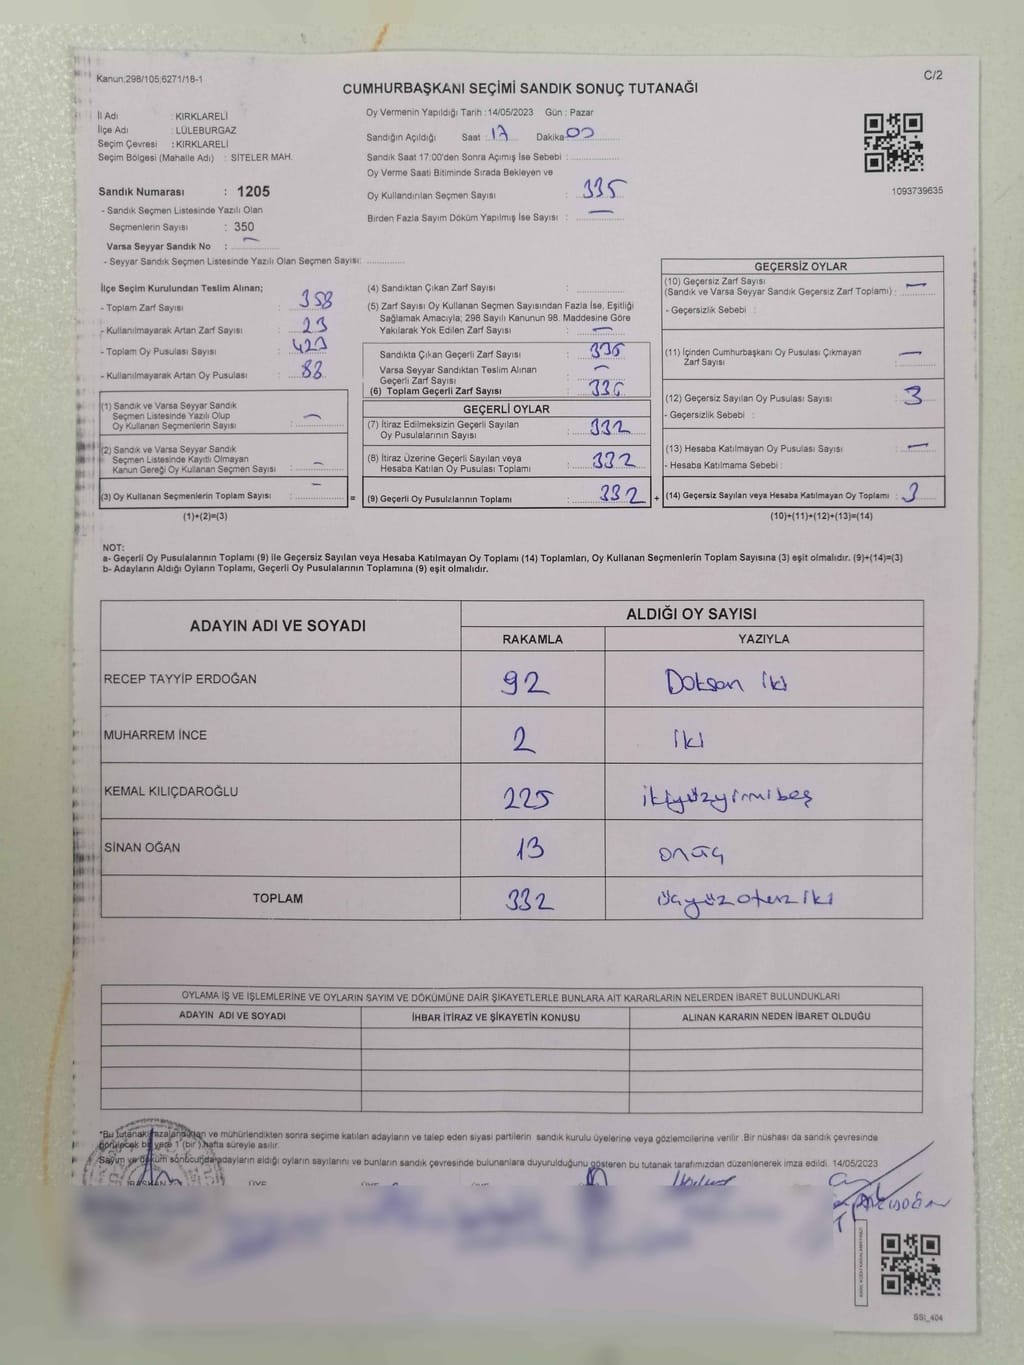 Kanun:298/105;6271/18-1
C/2
CUMHURBAŞKANI SEÇİMİ SANDIK SONUÇ TUTANAĞI
İl Adı : KIRKLARELİ
İlçe Adı : LÜLEBURGAZ
Seçim Çevresi : KIRKLARELİ
Seçim Bölgesi (Mahalle Adı) : SİTELER MAH.
Sandık Numarası : 1205
- Sandık Seçmen Listesinde Yazılı Olan
Seçmenlerin Sayısı : 350
Varsa Seyyar Sandık No : —
- Seyyar Sandık Seçmen Listesinde Yazılı Olan Seçmen Sayısı:
Oy Vermenin Yapıldığı Tarih :14/05/2023 Gün : Pazar
Sandığın Açıldığı Saat : 17 Dakika 00
Sandık Saat 17:00'den Sonra Açımış İse Sebebi :
Oy Verme Saati Bitiminde Sırada Bekleyen ve
Oy Kullandırılan Seçmen Sayısı : 335
Birden Fazla Sayım Döküm Yapılmış İse Sayısı : —
1093739635
İlçe Seçim Kurulundan Teslim Alınan;
- Toplam Zarf Sayısı : 358
- Kullanılmayarak Artan Zarf Sayısı : 23
- Toplam Oy Pusulası Sayısı :
- Kullanılmayarak Artan Oy Pusulası : 88
(1) Sandık ve Varsa Seyyar Sandık
Seçmen Listesinde Yazılı Olup
Oy Kullanan Seçmenlerin Sayısı : —
(2) Sandık ve Varsa Seyyar Sandık
Seçmen Listesinde Kayıtlı Olmayan
Kanun Gereği Oy Kullanan Seçmen Sayısı : —
(3) Oy Kullanan Seçmenlerin Toplam Sayısı : —
(1)+(2)=(3)
=
(4) Sandıktan Çıkan Zarf Sayısı :
(5) Zarf Sayısı Oy Kullanan Seçmen Sayısından Fazla İse, Eşitliği
Sağlamak Amacıyla; 298 Sayılı Kanunun 98. Maddesine Göre
Yakılarak Yok Edilen Zarf Sayısı : —
Sandıkta Çıkan Geçerli Zarf Sayısı : 335
Varsa Seyyar Sandıktan Teslim Alınan
Geçerli Zarf Sayısı : —
(6) Toplam Geçerli Zarf Sayısı : 335
GEÇERLİ OYLAR
(7) İtiraz Edilmeksizin Geçerli Sayılan
Oy Pusulalarının Sayısı : 332
(8) İtiraz Üzerine Geçerli Sayılan veya
Hesaba Katılan Oy Pusulası Toplamı : 332
(9) Geçerli Oy Pusulalarının Toplamı : 332
+
GEÇERSİZ OYLAR
(10) Geçersiz Zarf Sayısı
(Sandık ve Varsa Seyyar Sandık Geçersiz Zarf Toplamı) : —
- Geçersizlik Sebebi :
(11) İçinden Cumhurbaşkanı Oy Pusulası Çıkmayan
Zarf Sayısı : —
(12) Geçersiz Sayılan Oy Pusulası Sayısı : 3
- Geçersizlik Sebebi :
(13) Hesaba Katılmayan Oy Pusulası Sayısı : —
- Hesaba Katılmama Sebebi :
(14) Geçersiz Sayılan veya Hesaba Katılmayan Oy Toplamı : 3
(10)+(11)+(12)+(13)=(14)
NOT:
a- Geçerli Oy Pusulalarının Toplamı (9) ile Geçersiz Sayılan veya Hesaba Katılmayan Oy Toplamı (14) Toplamları, Oy Kullanan Seçmenlerin Toplam Sayısına (3) eşit olmalıdır. (9)+(14)=(3)
b- Adayların Aldığı Oyların Toplamı, Geçerli Oy Pusulalarının Toplamına (9) eşit olmalıdır.
ADAYIN ADI VE SOYADI
ALDIĞI OY SAYISI
RAKAMLA YAZIYLA
RECEP TAYYİP ERDOĞAN 92 Doksan iki
MUHARREM İNCE 2 iki
KEMAL KILIÇDAROĞLU 225 ikiyüzyirmibeş
SİNAN OĞAN 13 onüç
TOPLAM 332 üçyüzotuziki
OYLAMA İŞ VE İŞLEMLERİNE VE OYLARIN SAYIM VE DÖKÜMÜNE DAİR ŞİKAYETLERLE BUNLARA AİT KARARLARIN NELERDEN İBARET BULUNDUKLARI
ADAYIN ADI VE SOYADI İHBAR İTİRAZ VE ŞİKAYETİN KONUSU ALINAN KARARIN NEDEN İBARET OLDUĞU
"Bu tutanak imzalandıktan ve mühürlendikten sonra seçime katılan adayların ve talep eden siyasi partilerin sandık kurulu üyelerine veya gözlemcilerine verilir .Bir nüshası da sandık çevresinde
görülecek bir yere 1 (bir ) hafta süreyle asılır.
Sayım ve döküm sonucunda adayların aldığı oyların sayılarını ve bunların sandık çevresinde bulunanlara duyurulduğunu gösteren bu tutanak tarafımızdan düzenlenerek imza edildi. 14/05/2023
BAŞKAN
SSI_404